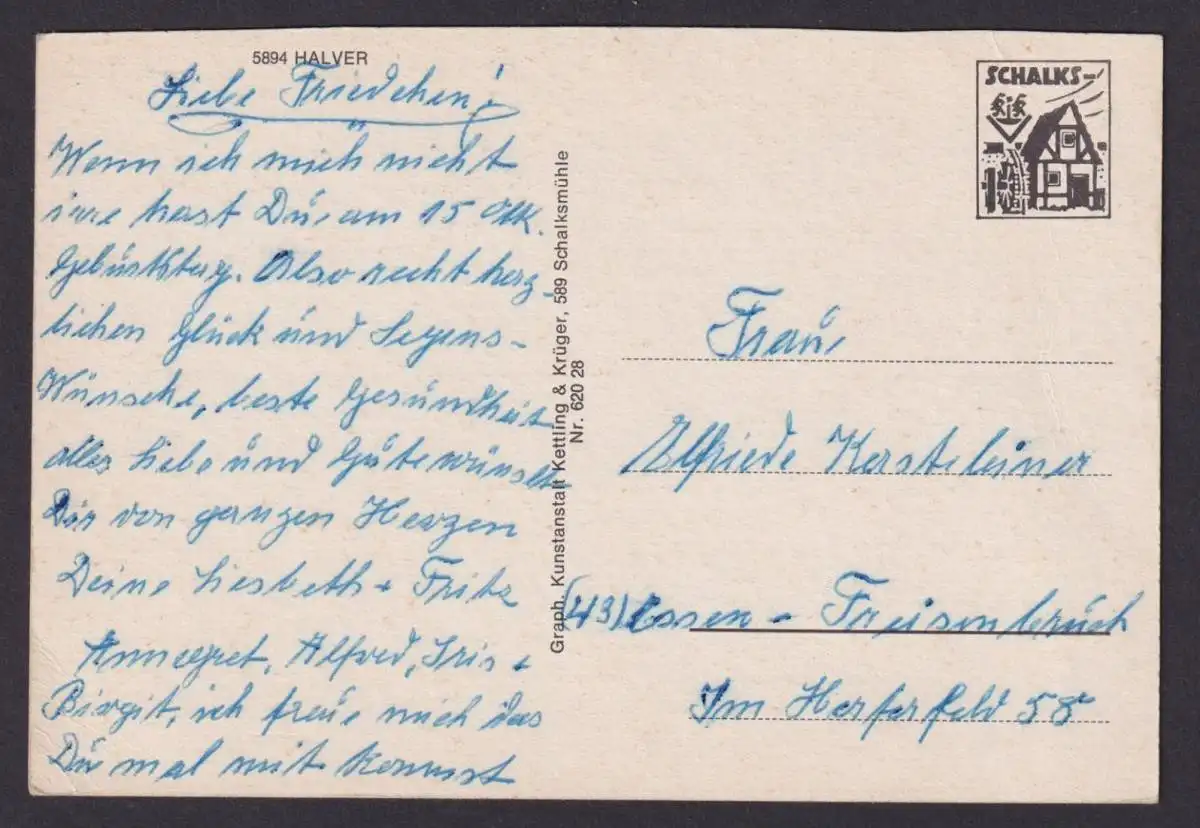 5894 HALVER
Liebe Friedchen!
Wenn ich mich nicht
irre hast Du am 15 Okt.
Geburtstag. Also recht herz-
lichen Glück und Segens-
Wünsche, beste Gesundheit
alles Liebe und Gute wünscht
Dir von ganzen Herzen
Deine Liesbeth + Fritz
Annegret, Alfred, Iris +
Birgit, ich freue mich das
Du mal mit kommst
Graph. Kunstanstalt Kettling & Krüger, 589 Schalksmühle
Nr. 620 28
SCHALKS-
Frau
Elfriede Kersteleiner
(43) Essen - Freisenbruch
Im Herferfeld 58